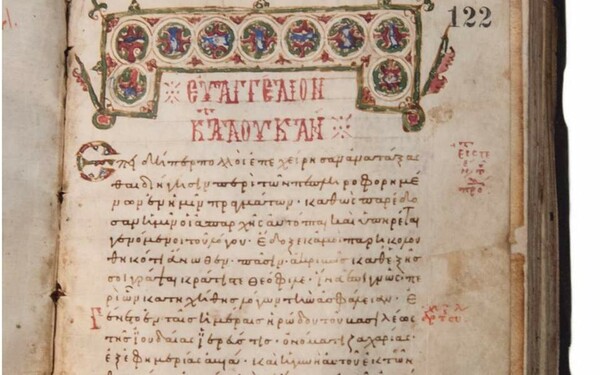 122
ΕΥΑΓΓΕΛΙΟΝ
ΚΑΤ ΛΟΥΚΑΝ
Ἐπειδήπερ πολλοὶ ἐπεχείρησαν ἀνατάξασ
θαι διήγησιν περὶ τῶν πεπληροφορημέ
νων ἐν ἡμῖν πραγμάτων· καθὼς παρέδο
σαν ἡμῖν οἱ ἀπαρχῆς αὐτόπται καὶ ὑπηρέται
γενόμενοι τοῦ λόγου· ἔδοξε κἀμοὶ παρηκολου
θηκότι ἄνωθεν πᾶσιν ἀκριβῶς καθεξῆς
σοι γράψαι κράτιστε θεόφιλε· ἵνα ἐπιγνῶς πε
ρὶ ὧν κατηχήθης λόγων τὴν ἀσφάλειαν· ἐ
γένετο ἐν ταῖς ἡμέραις ἡρώδου τοῦ βασιλέως
τῆς ἰουδαίας ἱερεύς τις ὀνόματι ζαχαρίας
ἐξ ἐφημερίας ἀβιά· καὶ ἡ γυνὴ αὐτοῦ ἐκ τῶν